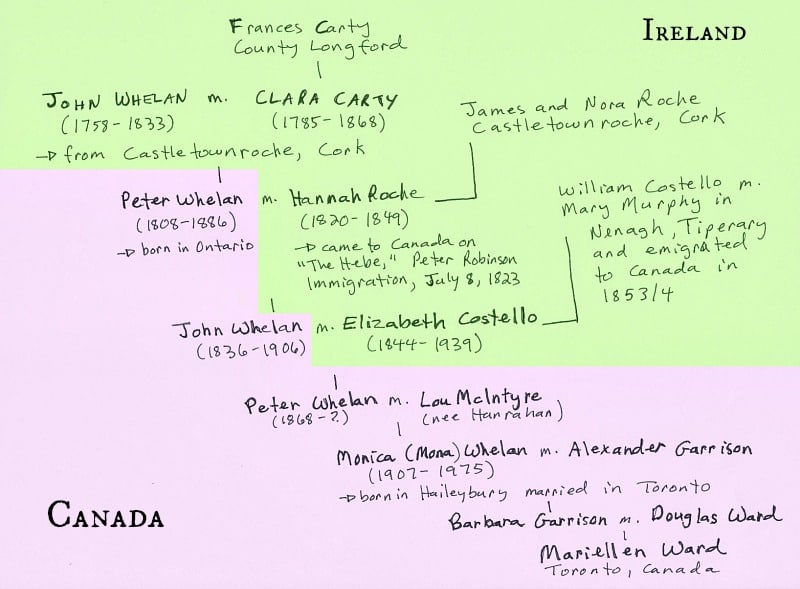 Frances Carty
County Longford
IRELAND
JOHN WHELAN m. CLARA CARTY
(1758-1833) (1785-1868)
→ from Castletownroche, Cork
James and Nora Roche
Castletownroche, Cork
Peter Whelan m. Hannah Roche
(1808-1886) (1820-1849)
→ born in Ontario
→ came to Canada on
"The Hebe," Peter Robinson
Immigration, July 8, 1823
William Costello m.
Mary Murphy in
Nenagh, Tiperary
and emigrated
to Canada in
1853/4
John Whelan m. Elizabeth Costello
(1836-1906) (1844-1939)
Peter Whelan m. Lou McIntyre
(1868-?) (nee Hanrahan)
Monica (Mona) Whelan m. Alexander Garrison
(1907-1975)
→ born in Haileybury married in Toronto
Barbara Garrison m. Douglas Ward
Mariellen Ward
Toronto, Canada
CANADA